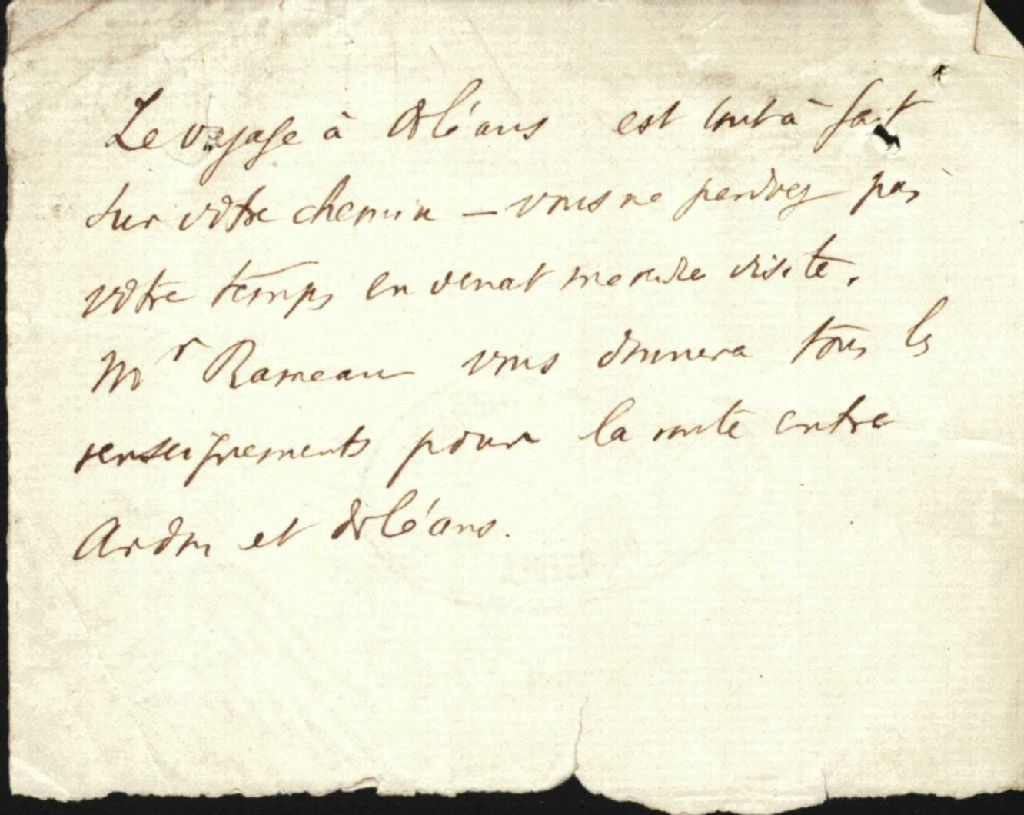 Le voyage à Orléans est tout à fait
sur votre chemin – vous ne perdrez pas
votre temps en venat me rendre visite.
Mr Rameau vous donnera tous les
renseignements pour la route entre
Ardon et Orléans.